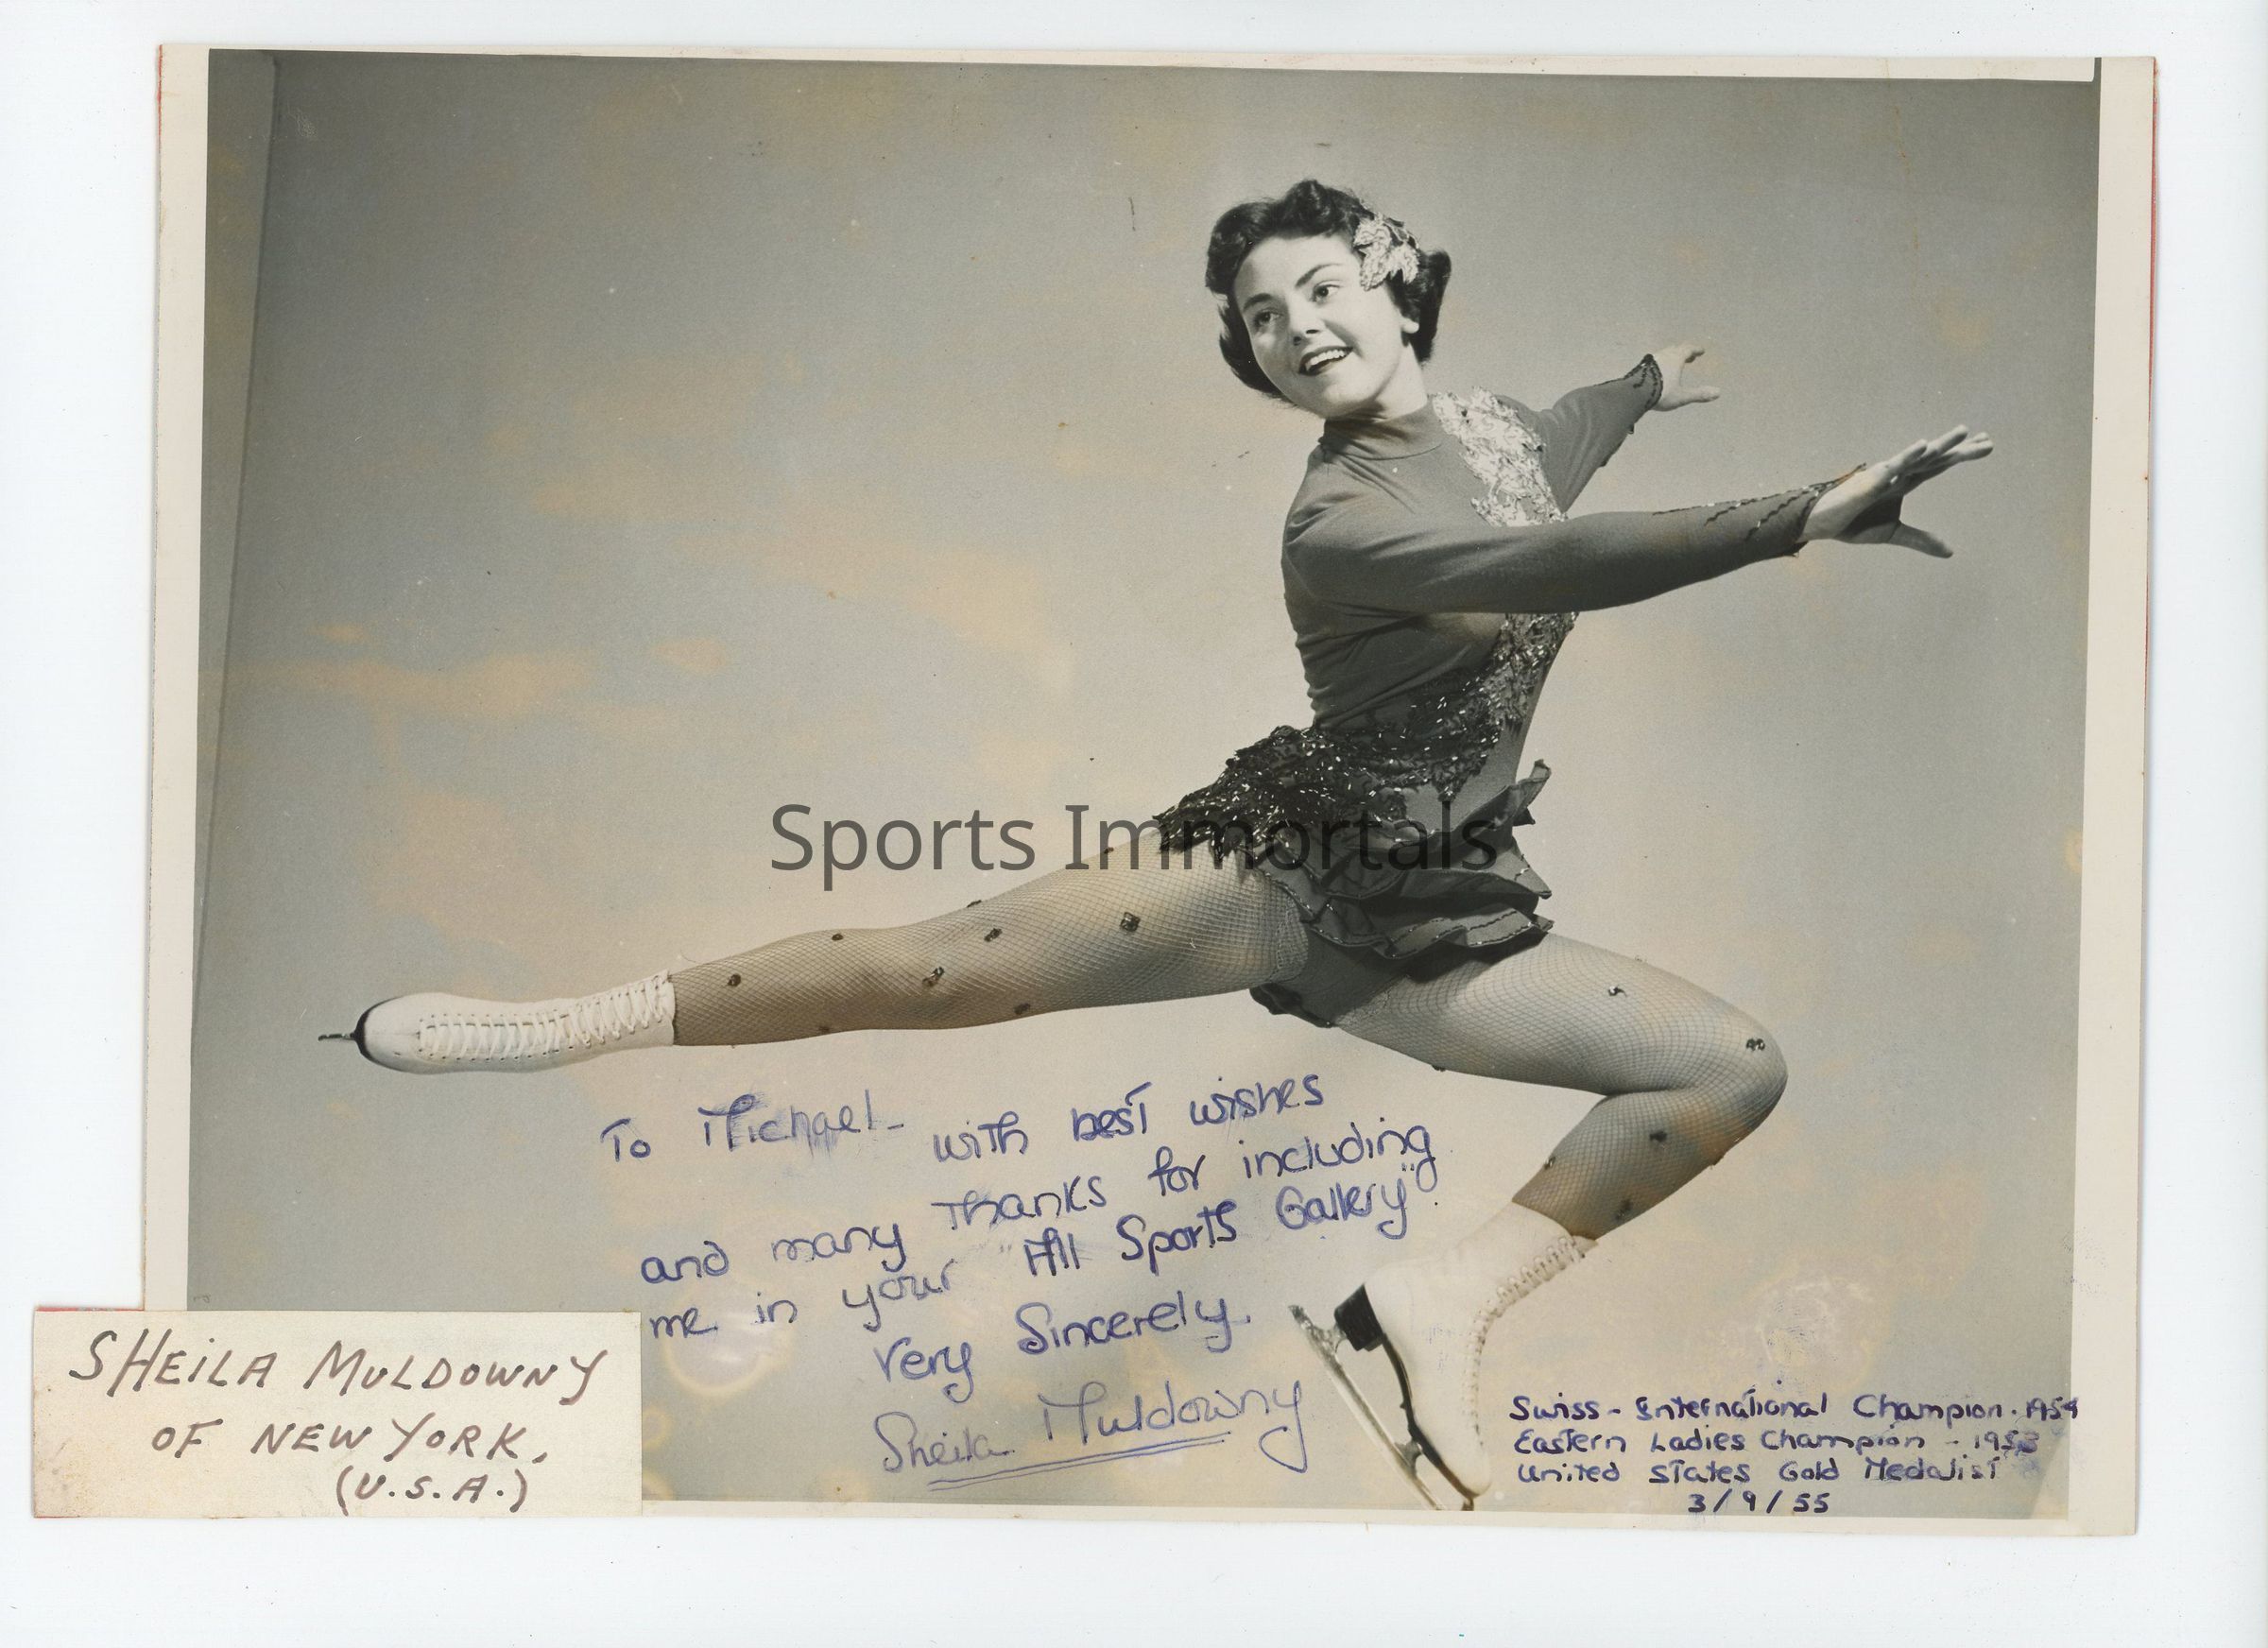 Sports Immortals
To Michael - with best wishes
and many thanks for including
me in your "All Sports Gallery".
Very Sincerely.
Sheila Muldowny
SHEILA MULDOWNY
OF NEW YORK,
(U.S.A.)
Swiss - International Champion. 1954
Eastern Ladies Champion - 1953
United States Gold Medalist
3/9/55